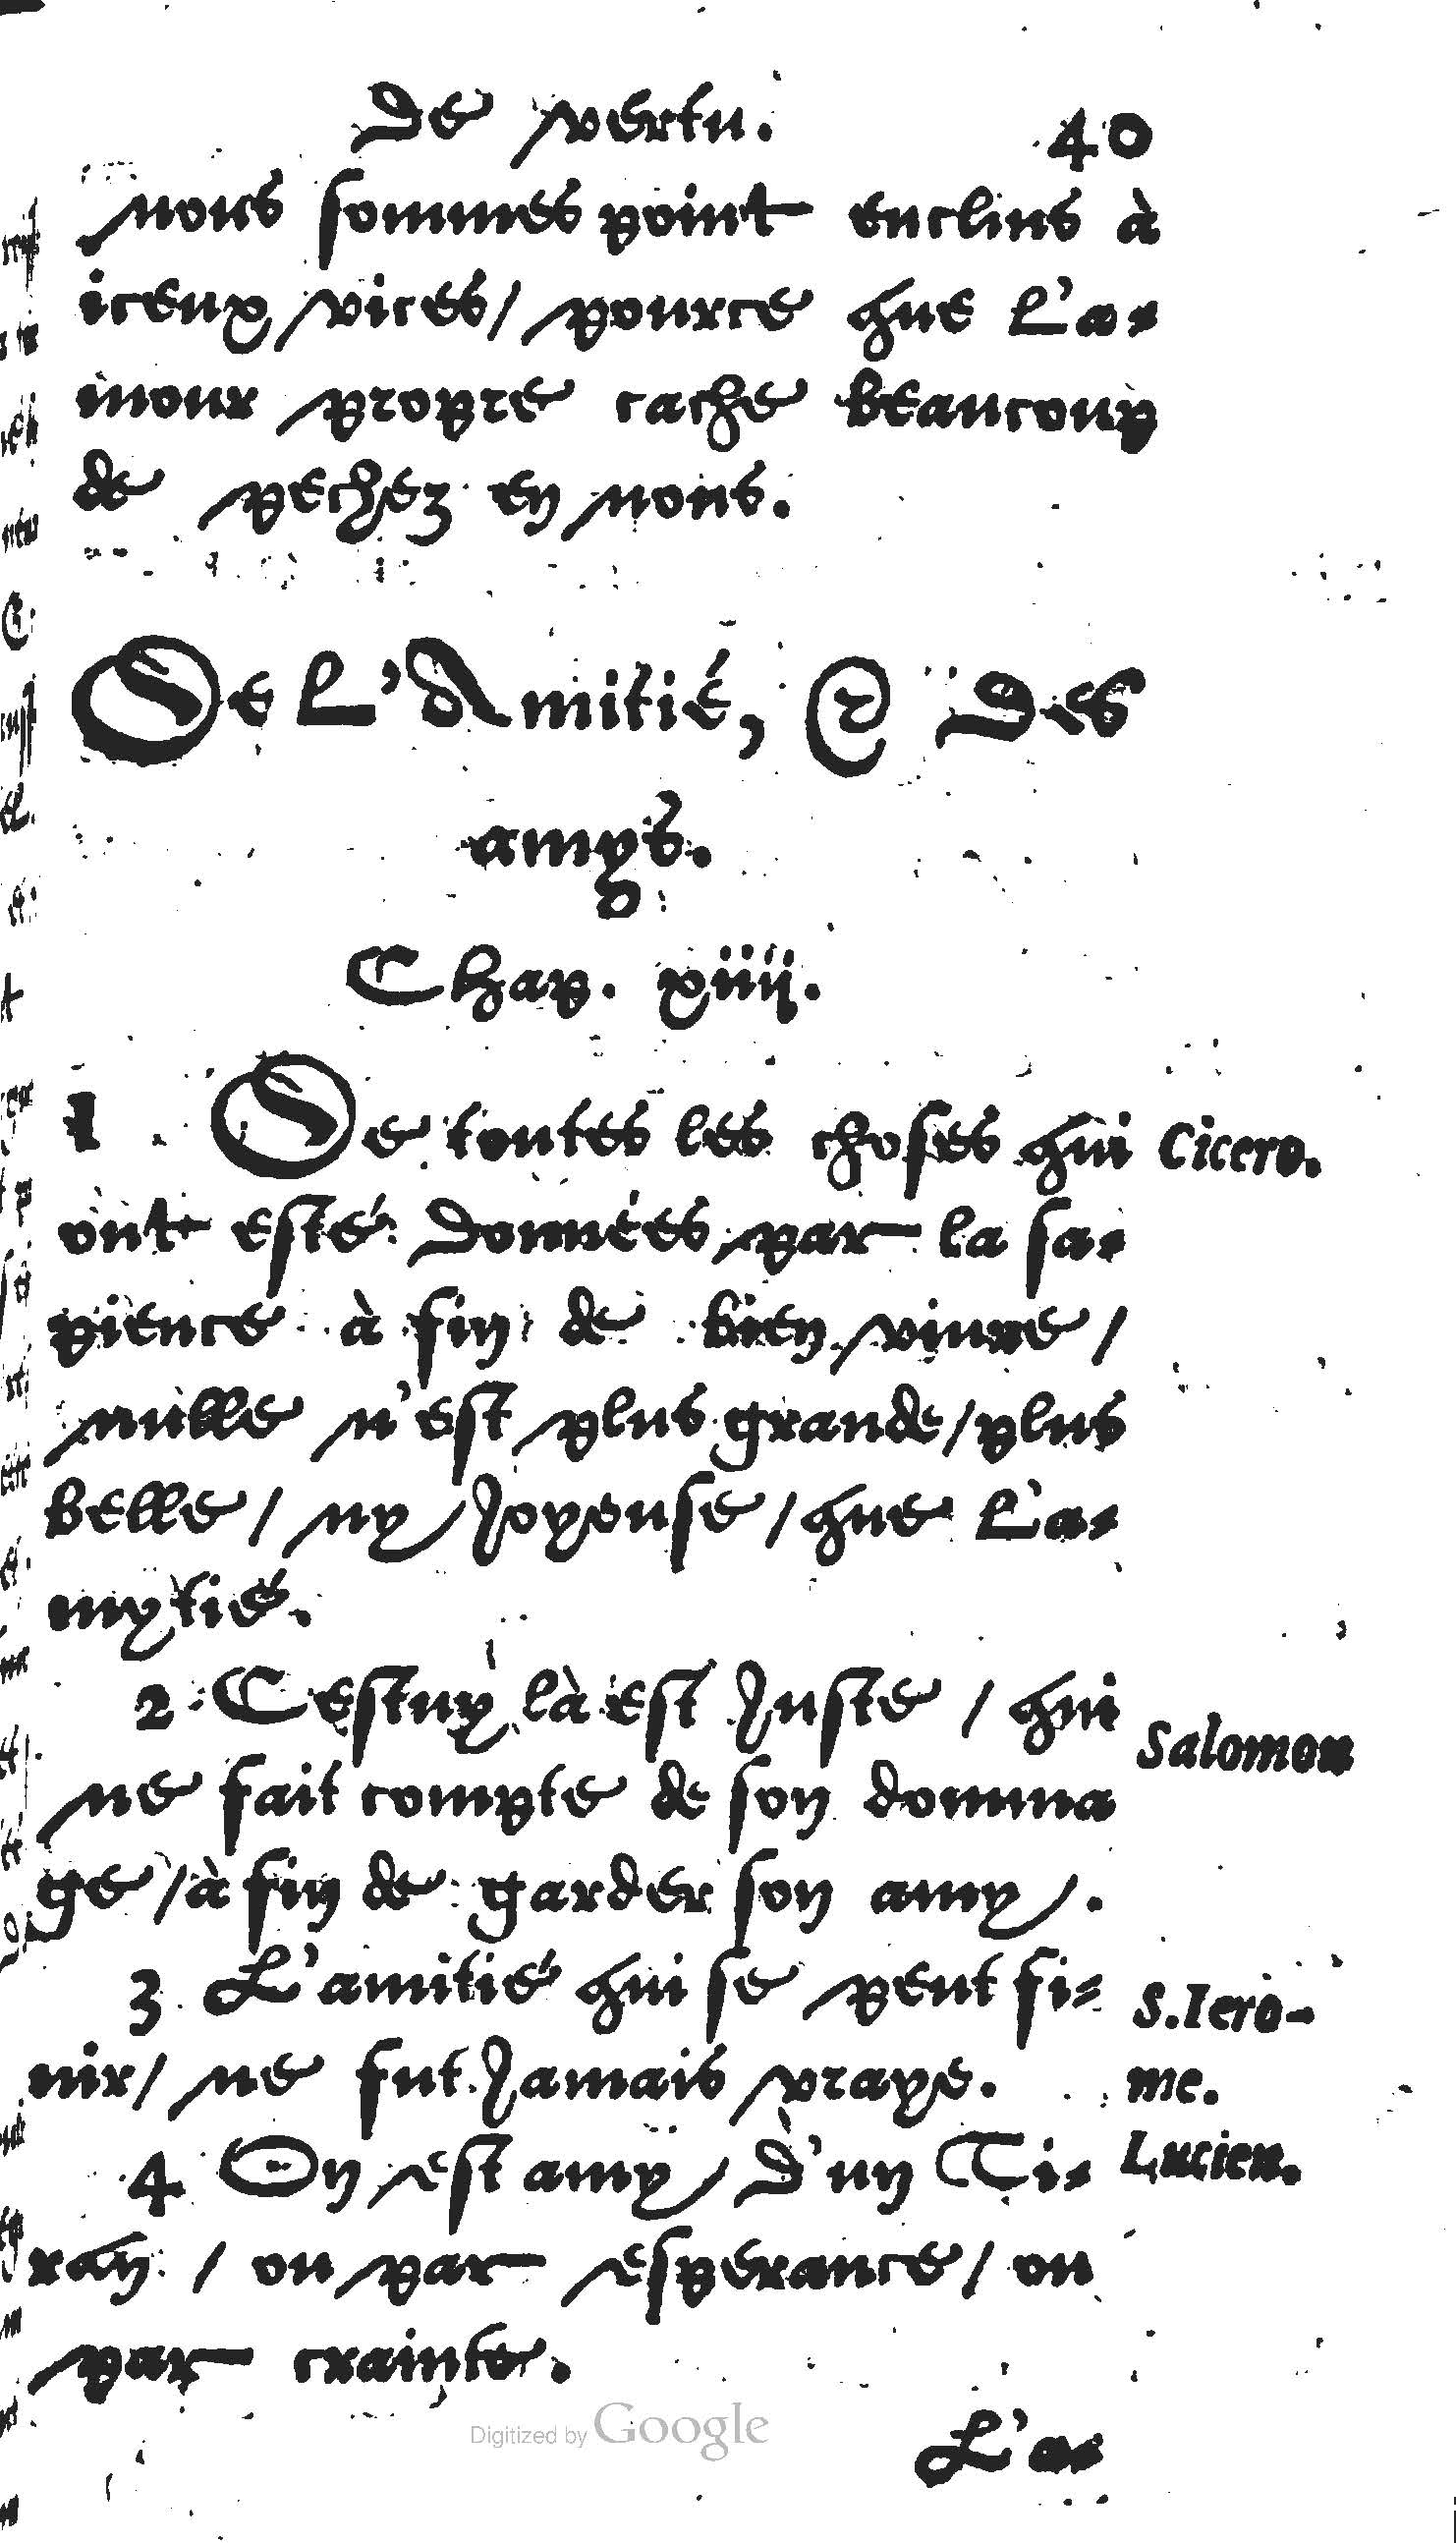 De vertu. 40
nous sommes point enclins à
iceux vices/ pource que l'a-
mour propre cache beaucoup
de pechez en nous.
De l'Amitié, & des
amys.
Chap. xiiij.
1 De toutes les choses qui Cicero.
ont esté données par la sa-
pience à fin de bien vivre/
nulle n'est plus grande/plus
belle/ ny Joyeuse/que l'a-
mytié.
2 Cestuy là est Juste/ qui Salomon
ne fait compte de son domma
ge/à fin de garder son amy/.
3 L'amitié qui se peut fi- S. Iero-
nir/ ne fut Jamais vraye. me.
4 On est amy/ d'un Ti- Lucien.
ran/ ou par esperance/ ou
par crainte.
Digitized by Google
L'a-